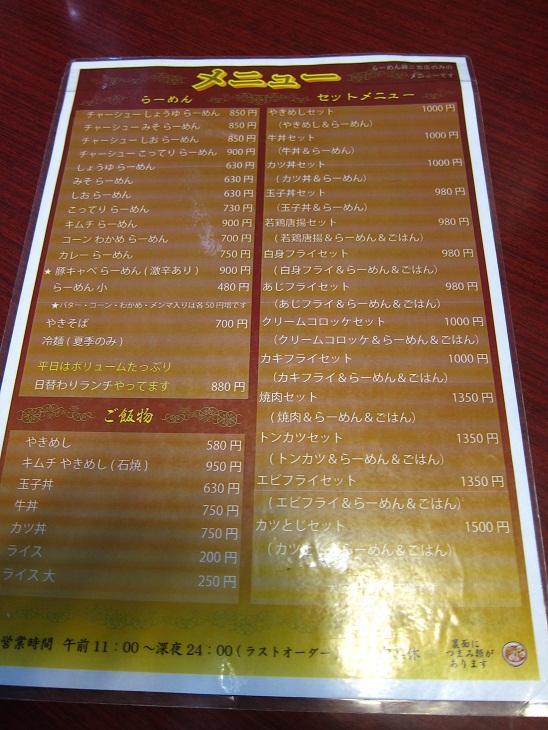 メニュー
らーめん
チャーシュー しょうゆ らーめん 850円
チャーシュー みそ らーめん 850円
チャーシュー しお らーめん 850円
チャーシュー こってり らーめん 900円
しょうゆ らーめん 630円
みそ らーめん 630円
しお らーめん 630円
こってり らーめん 730円
キムチ らーめん 900円
コーン わかめ らーめん 700円
カレー らーめん 750円
★ 豚キャベ らーめん ( 激辛あり ) 900円
らーめん 小 480円
★バター・コーン・わかめ・メンマ入りは各50円増です
やきそば 700円
冷麺 ( 夏季のみ )
平日はボリュームたっぷり
日替わりランチやってます 880円
ご飯物
やきめし 580円
キムチ やきめし ( 石焼 ) 950円
玉子丼 630円
牛丼 750円
カツ丼 750円
ライス 200円
ライス 大 250円
メニューです
セットメニュー
やきめしセット 1000円
(やきめし&らーめん)
牛丼セット 1000円
(牛丼&らーめん)
カツ丼セット 1000円
(カツ丼&らーめん)
玉子丼セット 980円
(玉子丼&らーめん)
若鶏唐揚セット 980円
(若鶏唐揚&らーめん&ごはん)
白身フライセット 980円
(白身フライ&らーめん&ごはん)
あじフライセット 980円
(あじフライ&らーめん&ごはん)
クリームコロッケセット 1000円
(クリームコロッケ&らーめん&ごはん)
カキフライセット 1000円
(カキフライ&らーめん&ごはん)
焼肉セット 1350円
(焼肉&らーめん&ごはん)
トンカツセット 1350円
(トンカツ&らーめん&ごはん)
エビフライセット 1350円
(エビフライ&らーめん&ごはん)
カツとじセット 1500円
(カツ らーめん&ごはん)
営業時間 午前11：00〜深夜24：00(ラストオーダー 休
裏面に
つまみ類が
あります